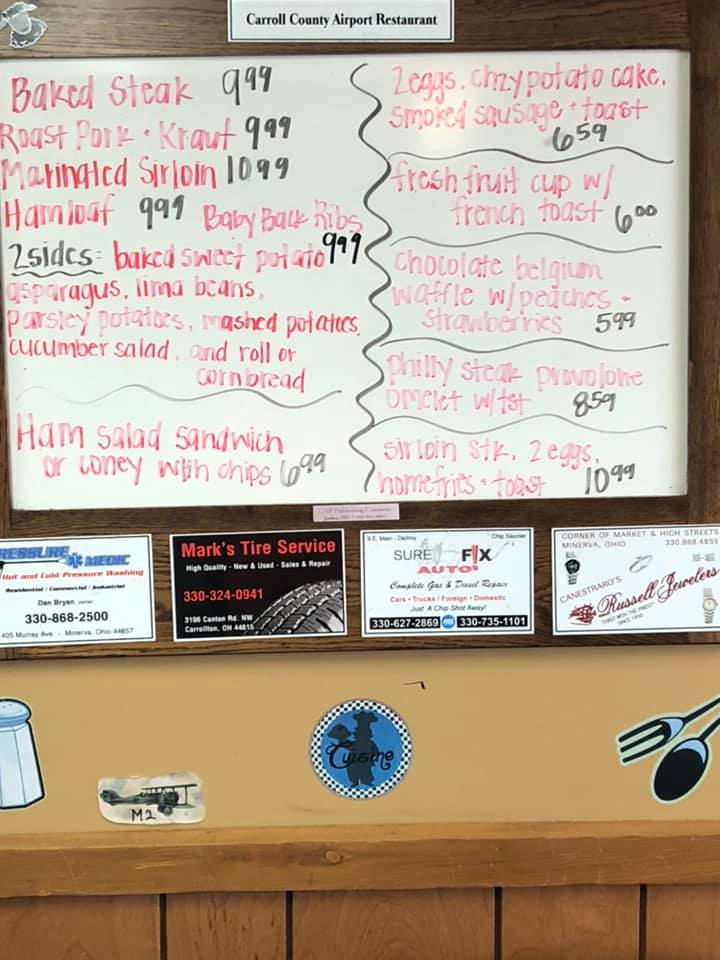 Carroll County Airport Restaurant
Baked Steak 9 99
Roast Pork + Kraut 9 99
Marinated Sirloin 10 99
Hamloaf 9 99 Baby Back Ribs
9 99
2 sides: baked sweet potato
asparagus, lima beans,
parsley potatoes, mashed potatoes,
cucumber salad, and roll or
cornbread
Ham salad sandwich
or coney with chips 6 99
2 eggs, chzy potato cake,
smoked sausage + toast
6 59
fresh fruit cup w/
french toast 6 00
chocolate belgium
waffle w/peaches +
strawberries 5 99
philly steak provolone
omelet w/tst 8 59
sirloin stk, 2 eggs,
homefries + toast 10 99
PRESSURE MEDIC
Hot and Cold Pressure Washing
Residential / Commercial / Industrial
Dan Bryan, owner
330-868-2500
405 Murray Ave. - Minerva, Ohio 44657
Mark's Tire Service
High Quality - New & Used - Sales & Repair
330-324-0941
3108 Canton Rd. NW
Carrollton, OH 44615
9 E. Main - Dellroy Chip Saunier
SURE FIX
AUTO
Complete Gas & Diesel Repair
Cars • Trucks / Foreign • Domestic
Just A Chip Shot Away!
330-627-2869 330-735-1101
CORNER OF MARKET & HIGH STREETS
MINERVA, OHIO 330.868.4855
CANESTRARO'S
Russell Jewelers
"FIRST WITH THE FINEST"
SINCE 1950
Cuisine
M2